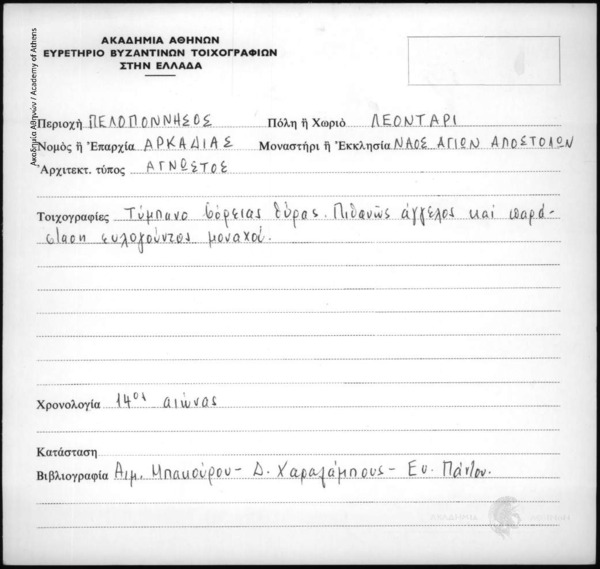 ΑΚΑΔΗΜΙΑ ΑΘΗΝΩΝ
ΕΥΡΕΤΗΡΙΟ ΒΥΖΑΝΤΙΝΩΝ ΤΟΙΧΟΓΡΑΦΙΩΝ
ΣΤΗΝ ΕΛΛΑΔΑ
Ακαδημία Αθηνών / Academy of Athens
Περιοχὴ ΠΕΛΟΠΟΝΝΗΣΟΣ Πόλη ἢ Χωριὸ ΛΕΟΝΤΑΡΙ
Νομὸς ἢ Ἐπαρχία ΑΡΚΑΔΙΑΣ Μοναστήρι ἢ Ἐκκλησία ΝΑΟΣ ΑΓΙΩΝ ΑΠΟΣΤΟΛΩΝ
Ἀρχιτεκτ. τύπος ΑΓΝΩΣΤΟΣ
Τοιχογραφίες Τύμπανο βόρειας θύρας. Πιθανῶς ἄγγελος καί παρά-
σταση εὐλογοῦντος μοναχοῦ.
Χρονολογία 14ος αιώνας
Κατάσταση
Βιβλιογραφία Αιμ. Μπακούρου - Δ. Χαραλάμπους - Ευ. Πάντου.
ΑΚΑΔΗΜΙΑ ΑΘΗΝΩΝ